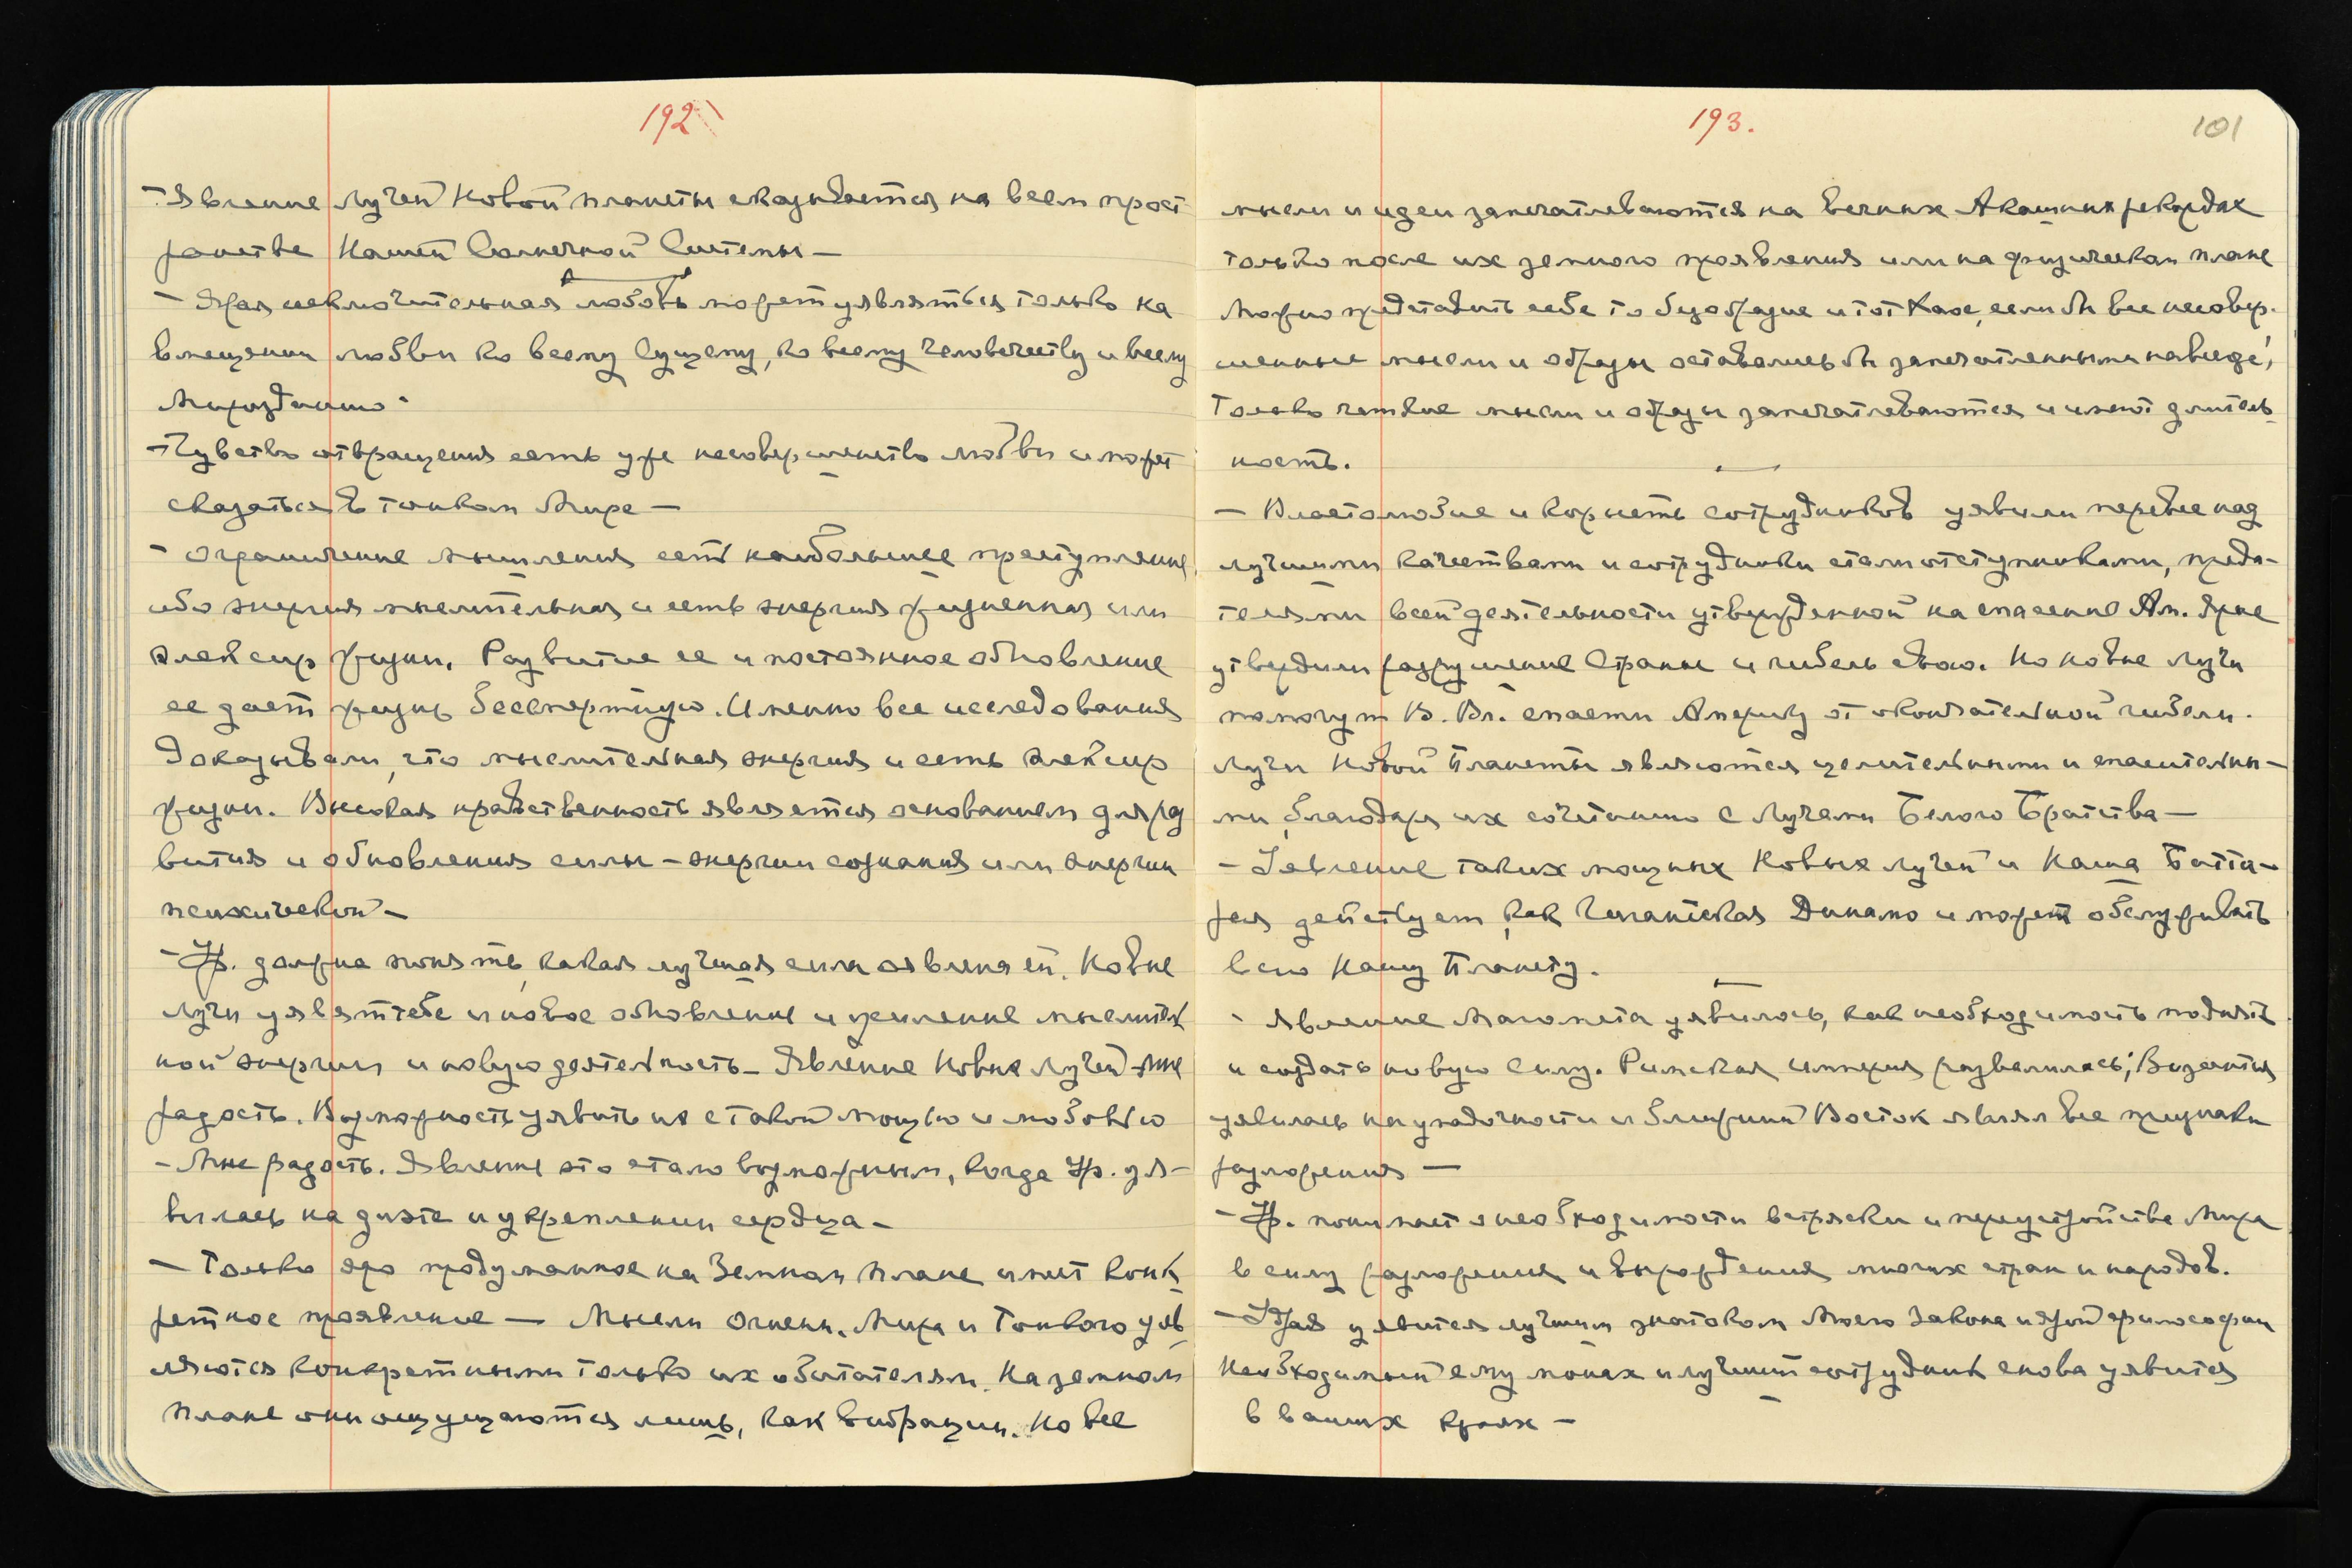 192
- Явление Лучей Новой планеты сказывается на всем прост
ранстве Нашей Солнечной Системы -
- Ярая исключительная любовь может уявляться только на
вмещении любви ко всему Сущему, ко всему человечеству и всему
Мирозданию.
- Чувство отвращения есть уже несовершенство любви и может
сказаться в тонком Мире -
- Ограничение мышления есть наибольшее преступление,
ибо энергия мыслительная и есть энергия жизненная или
элексир жизни. Развитие ее и постоянное обновление
ее дает жизнь бессмертную. Именно все исследования
доказывали, что мыслительная энергия и есть элексир
жизни. Высокая нравственность является основанием для раз
вития и обновления силы - энергии сознания или энергии
психической -
- Ур. должна понять, какая лучшая сила явлена ей. Новые
лучи уявят тебе и новое обновление и усиление мыслитель
ной энергии и новую деятельность - Явление Новых Лучей - Мне
радость. Возможность уявить их с такой мощью и любовью
- Мне радость. Явление это стало возможным, когда Ур. уя-
вилась на диэте и укреплении сердца -
- Только яро продуманное на Земном плане имеет конк
ретное проявление - Мысли Огненн. Мира и Тонкого уяв
ляются конкретными только их обитателям. На земном
плане они ощущаются лишь, как вибрации. Но все
193.
101
мысли и идеи запечатлеваются на вечных Акашных рекордах
только после их земного проявления или на физическом плане
Можно представить себе то безобразие и тот Хаос, если бы все несовер-
шенные мысли и образы оставались бы запечатленными навсегда!
Только четкие мысли и образы запечатлеваются и имеют длитель
ность.
- Властолюбие и корысть сотрудников уявили перевес над
лучшими качествами и сотрудники стали отступниками, преда-
телями всей деятельности утвержденной на спасение Ам. Ярые
утвердили разрушение Страны и гибель свою. Но новые лучи
помогут В. Вл. спасти Америку от окончательной гибели.
Лучи Новой Планеты являются целительными и спасительны-
ми, благодаря их сочетанию с Лучами Белого Братства -
- Уявление таких мощных Новых лучей и Наша Батта-
рея действует, как Гигантская Динамо и может обслуживать
всю Нашу Планету.
- Явление Магомета уявилось, как необходимость поднять
и создать новую силу. Римская империя развалилась; Византия
уявилась на упадочности и Ближний Восток являл все признаки
разложения -
- Ур. понимает о необходимости встряски и переустройстве Мира
в силу разложения и вырождения многих стран и народов.
- Удрая уявится лучшим знатоком Моего Закона и ярой философии
Необходимый ему монах и лучший сотрудник снова уявится
в ваших краях -